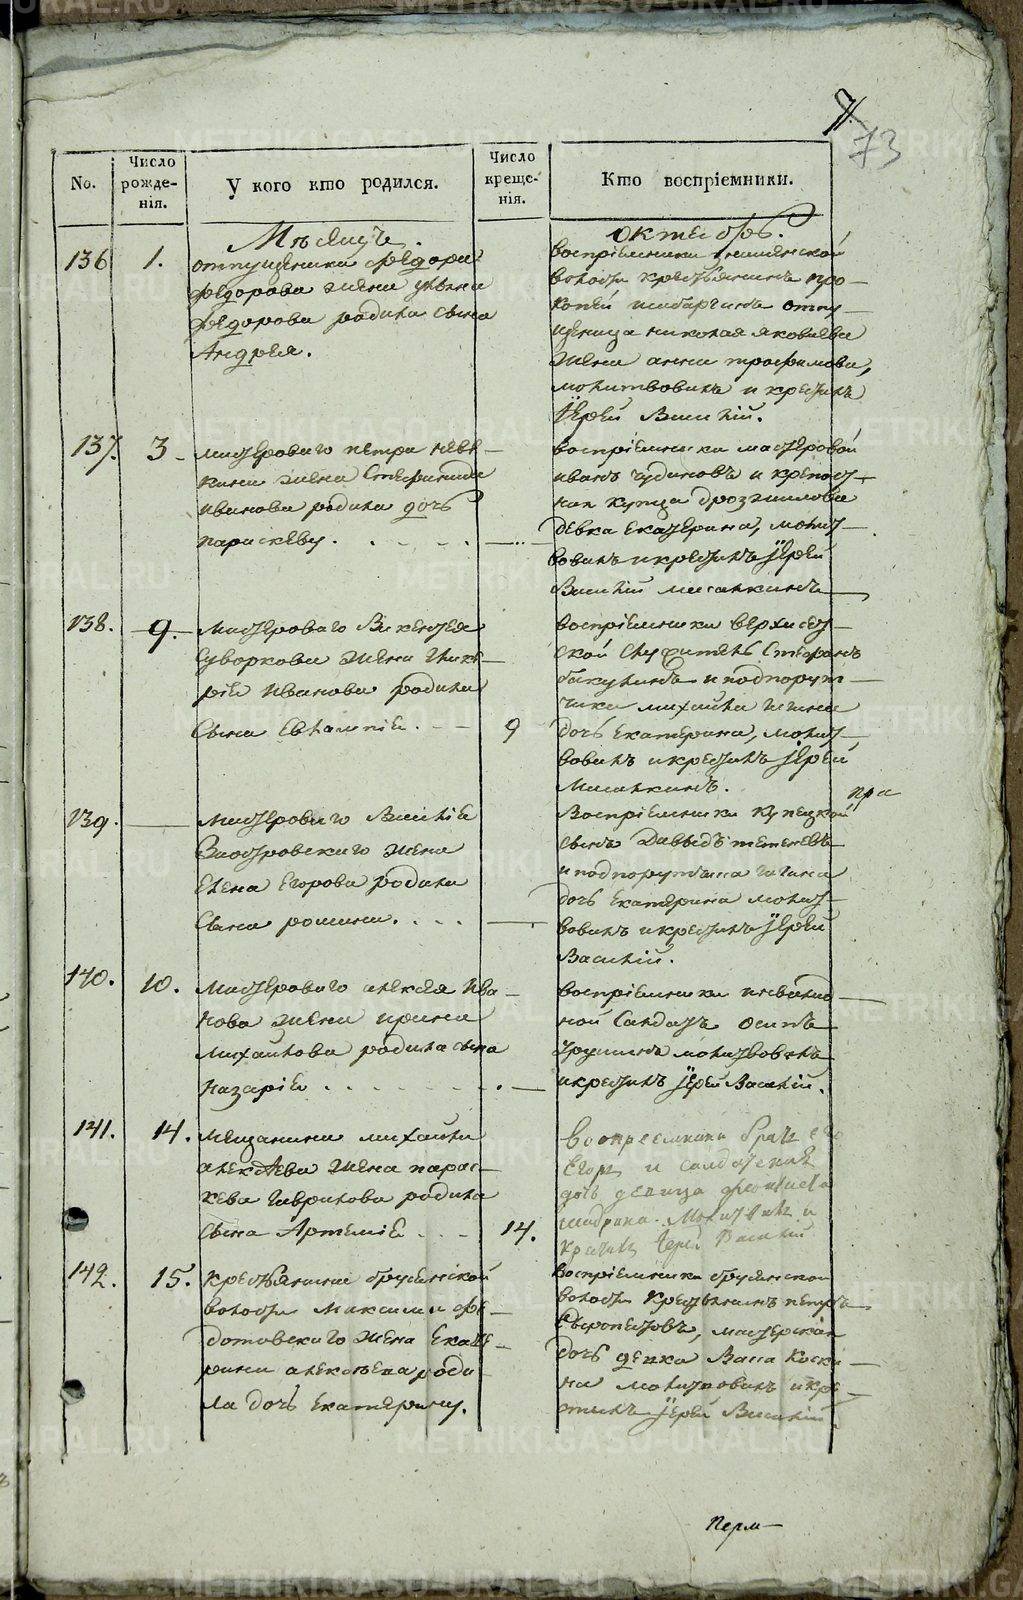 71.
73
No.
Число рожде-нія.
У кого кто родился.
Число креще-нія.
Кто воспріемники.
Мѣсяцъ
октябрь.
136
1.
отпущеника Федора
Федорова жена
Федорова родила сына
Андрея.
воспріемники
волости крестьянинъ про-
копей отпу-
щеница николая яковлева
жена анна трофимова,
молитвовалъ и крестилъ
іерей Василій.
137.
3
мастероваго петра
жена Стефанида
иванова родила дочь
параскеву.
воспріемники мастеровой
иванъ чудиновъ и крепост-
ная купца
девка екатерина, молит-
вовалъ и крестилъ іерей
Василій
138.
9.
мастероваго Викентея
Суворкова жена Глике-
рія иванова родила
сына Евлампіе.
9
воспріемники верхисет-
ской Стефанъ
бакулинъ и подпорут-
чика михайла
дочь екатерина, молит-
вовалъ и крестилъ іерей
139.
мастероваго Василіе
жена
елена егорова родила
сына романа.
воспріемники купецкой
сынъ Давыдъ
и подпорутчика
дочь екатерина молит-
вовалъ и крестилъ іерей
Василій.
при
140.
10.
мастероваго алексея ива-
нова жена ирина
михайлова родила сына
назаріе
воспріемники инвалид-
ной Салдатъ осипъ
молитвовалъ
и крестилъ іерей Василій.
141.
14.
мещанина михайла
алексѣева жена парас-
кева гаврилова родила
сына Артеміе
14.
воспреемники братъ его
Егоръ и салдатская
дочь девица
шадрина. Молитвилъ и
крестилъ іерей Василій
142.
15.
крестьянина брусянской
волости Максима Фе-
дотовского жена Екате-
рина алексѣева роди-
ла дочь екатерину.
воспріемники брусянской
волости крестьянинъ петръ
мастерская
дочь девка
молитвовалъ и кре-
стилъ іерей Василій
перм-